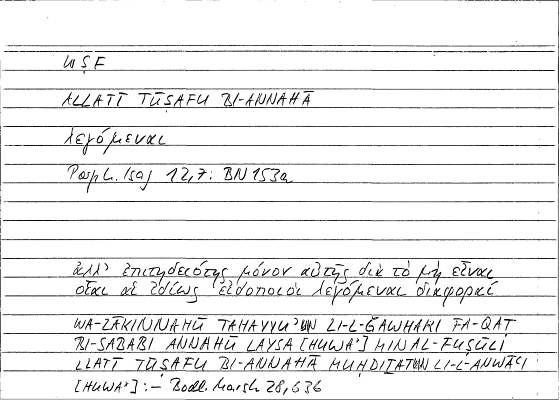 WṢF
ALLATĪ TŪṢAFU BI-ANNAHĀ
λεγόμεναι
Porph. Isag 12,7: BN 153a
ἀλλ' ἐπιτηδειότης μόνον αὐτῆς διὰ τὸ μὴ εἶναι
οἷαι αἱ ἰδίως εἰδοποιοὶ λεγόμεναι διαφοραί
WA-LĀKINNAHŪ TAHAYYU'UN LI-L-ǦAWHARI FA-QAṬ
BI-SABABI ANNAHŪ LAYSA [HUWA'] MINAL-FUṢŪLI
LLATĪ TŪṢAFU BI-ANNAHĀ MUḤDIṮATUN LI-L-ANWĀʿI
[HUWA']:– Bodl. Marsh 28,636